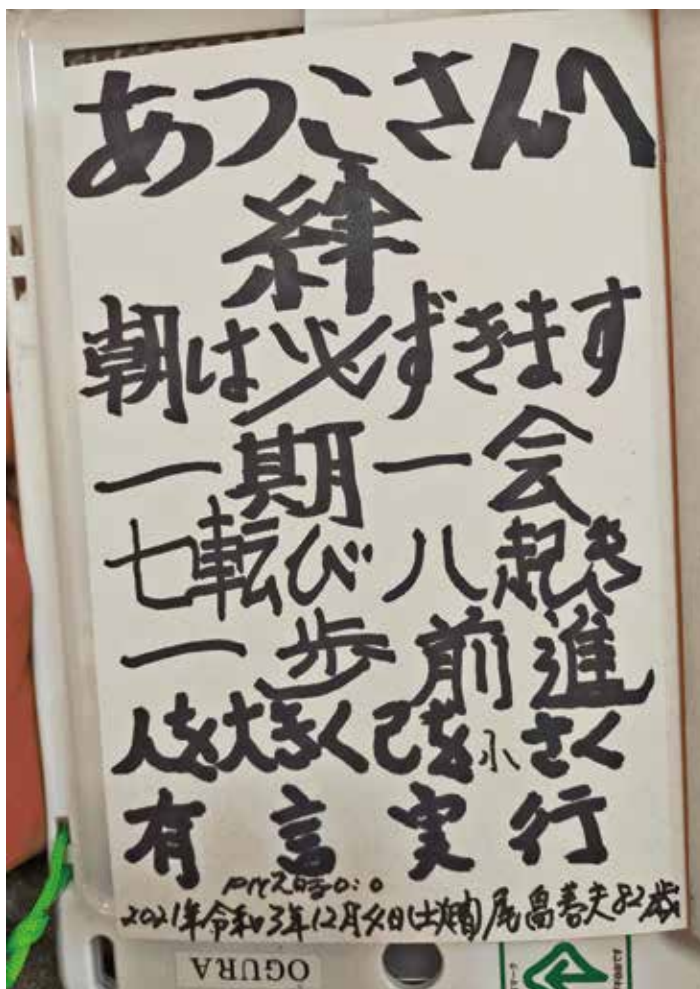 あつこさんへ
絆
朝は必ずきます
一期一会
七転び八起き
一歩前進
人を大きく己を小さく
有言実行
2021年令和3年12月4日(土)
尾畠春夫82歳
OGURA